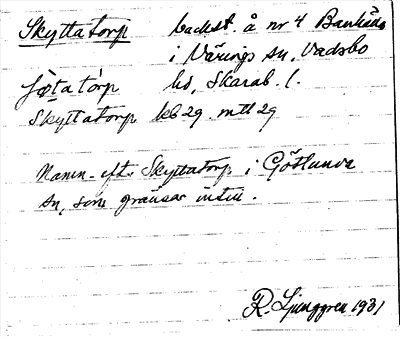 Skyttatorp backst. å nr 4
i Värings sn, Vadsbo
hd, Skarab. l.
Skyttatorp kb 29 mtl 29
Namn eft. Skyttatorp i Götlunda
sn, som gränsar intill.
R. Ljunggren 1931